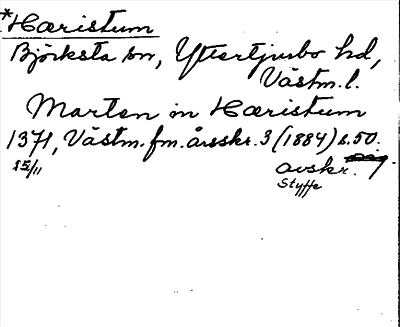 *Hæristum
Björksta sn, Yttertjurbo hd,
Västm. l.
Marten in Hæristum
1371, Västm. fm. årsskr. 3 (1884) s. 50.
25/11 avskr.
Styffe